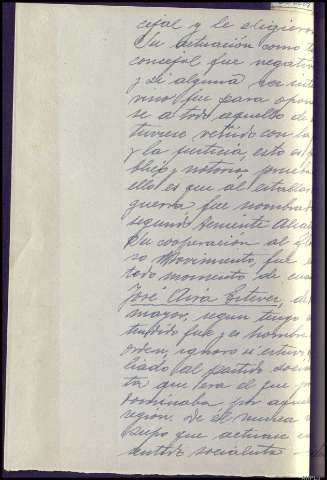 cejal y le eligiero
Su actuación como t
concejal fue negativ
y si alguna vez inte
vino fue para opon
se a todo aquello de
tuviere reñido con la
y la justicia, esto es
blico y notorio prueba
ello es que al estallar
guerra fue nombrad
segundo teniente Alcal
Su cooperación al glo
so Movimiento, fue
todo momento de
José Airá Esteve, de
mayor, según tengo
tendido fue y es hombre
orden, ignoro si estuvo
liado al partido socia
ta que era el que
dominaba por aque
region. De él nunca
supo que actuase
sentido socialista